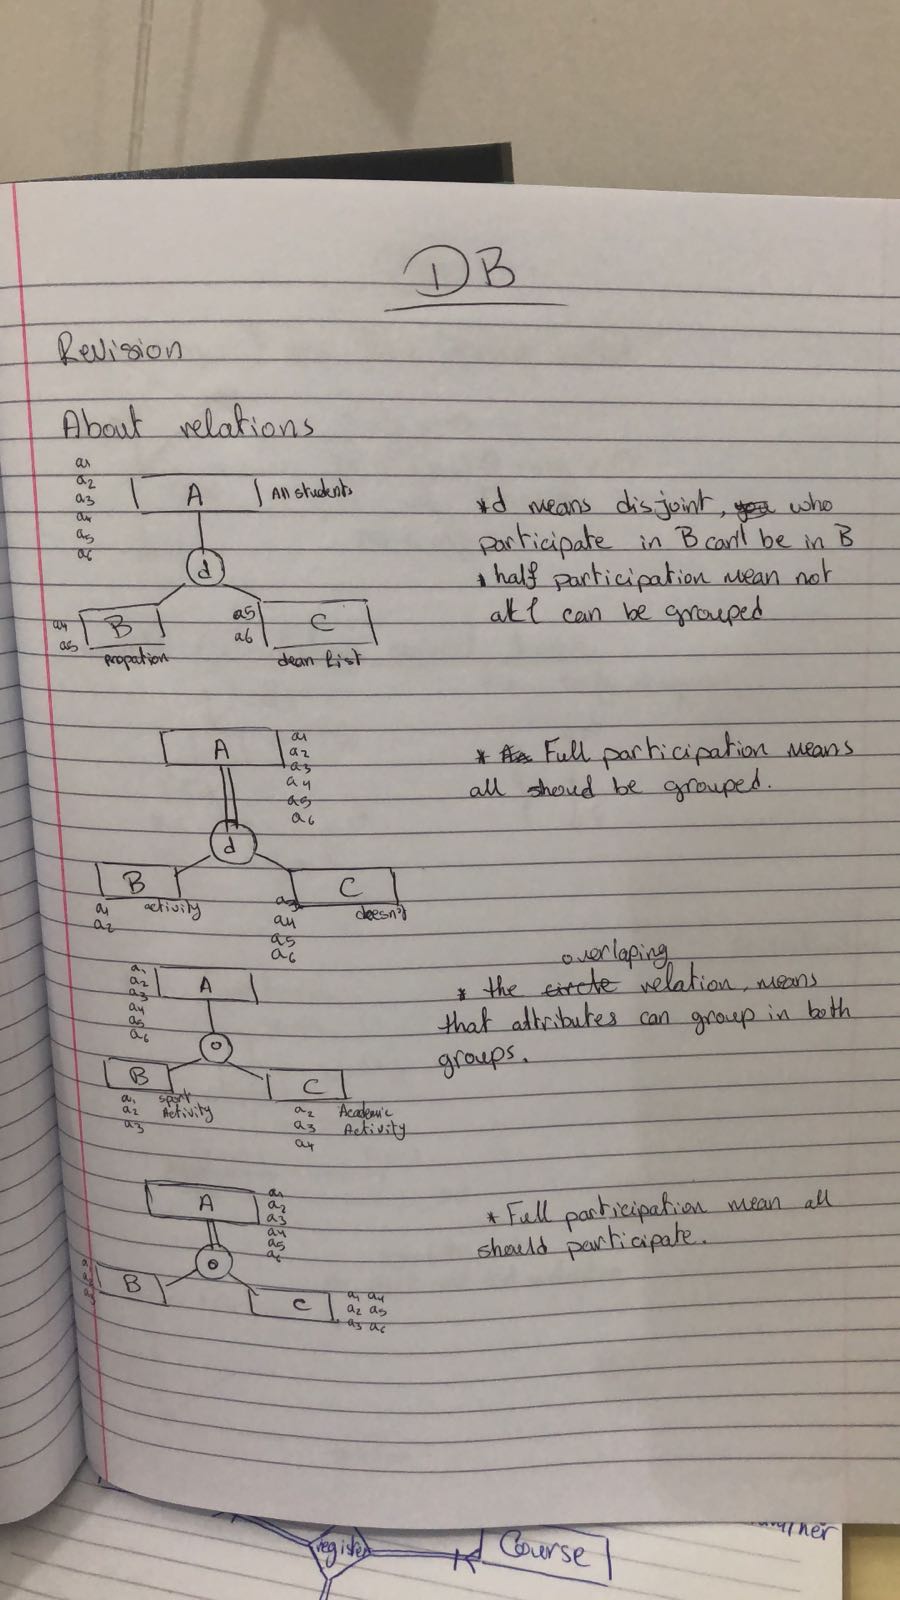 DB
Revision
About relations
a1
a2
a3
a4
a5
a6
A
All students
d
a4
a5
B
propation
a5
a6
C
dean list
*d means disjoint, who
participate in B can't be in B
* half participation mean not
all can be grouped
A
a1
a2
a3
a4
a5
a6
d
B
activity
a1
a2
C
doesn't
a3
a4
a5
a6
* Full participation means
all should be grouped.
a1
a2
a3
a4
a5
a6
A
o
B
a1
a2
a3
sport
Activity
C
a2
a3
a4
Academic
Activity
overlaping
* the circle relation, means
that attributes can group in both
groups.
A
a1
a2
a3
a4
a5
a6
o
B
C
a1 a4
a2 a5
a3 a6
* Full participation mean all
should participate.
register
Course